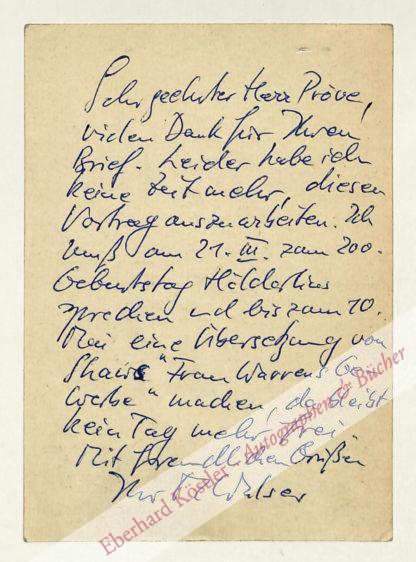 Sehr geehrter Herr Pröve,
vielen Dank für Ihren
Brief. Leider habe ich
keine Zeit mehr, diesen
Vortrag auszuarbeiten. Ich
muß am 21. III. zum 200.
Geburtstag Hölderlins
sprechen und bis zum 10.
Mai eine Übersetzung von
Shaws "Frau Warrens Ge-
werbe" machen, da bleibt
kein Tag mehr frei
Mit freundlichen Grüßen
Ihr M. Walser
Eberhard Köstler Autographen & Bücher